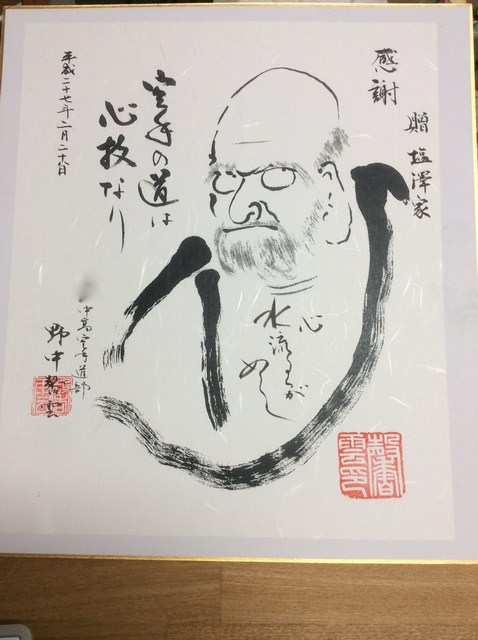 感謝
贈 塩澤家
空手の道は
心技なり
平成二十七年二月二十日
心
水流るるが
如し
空手道部
野中